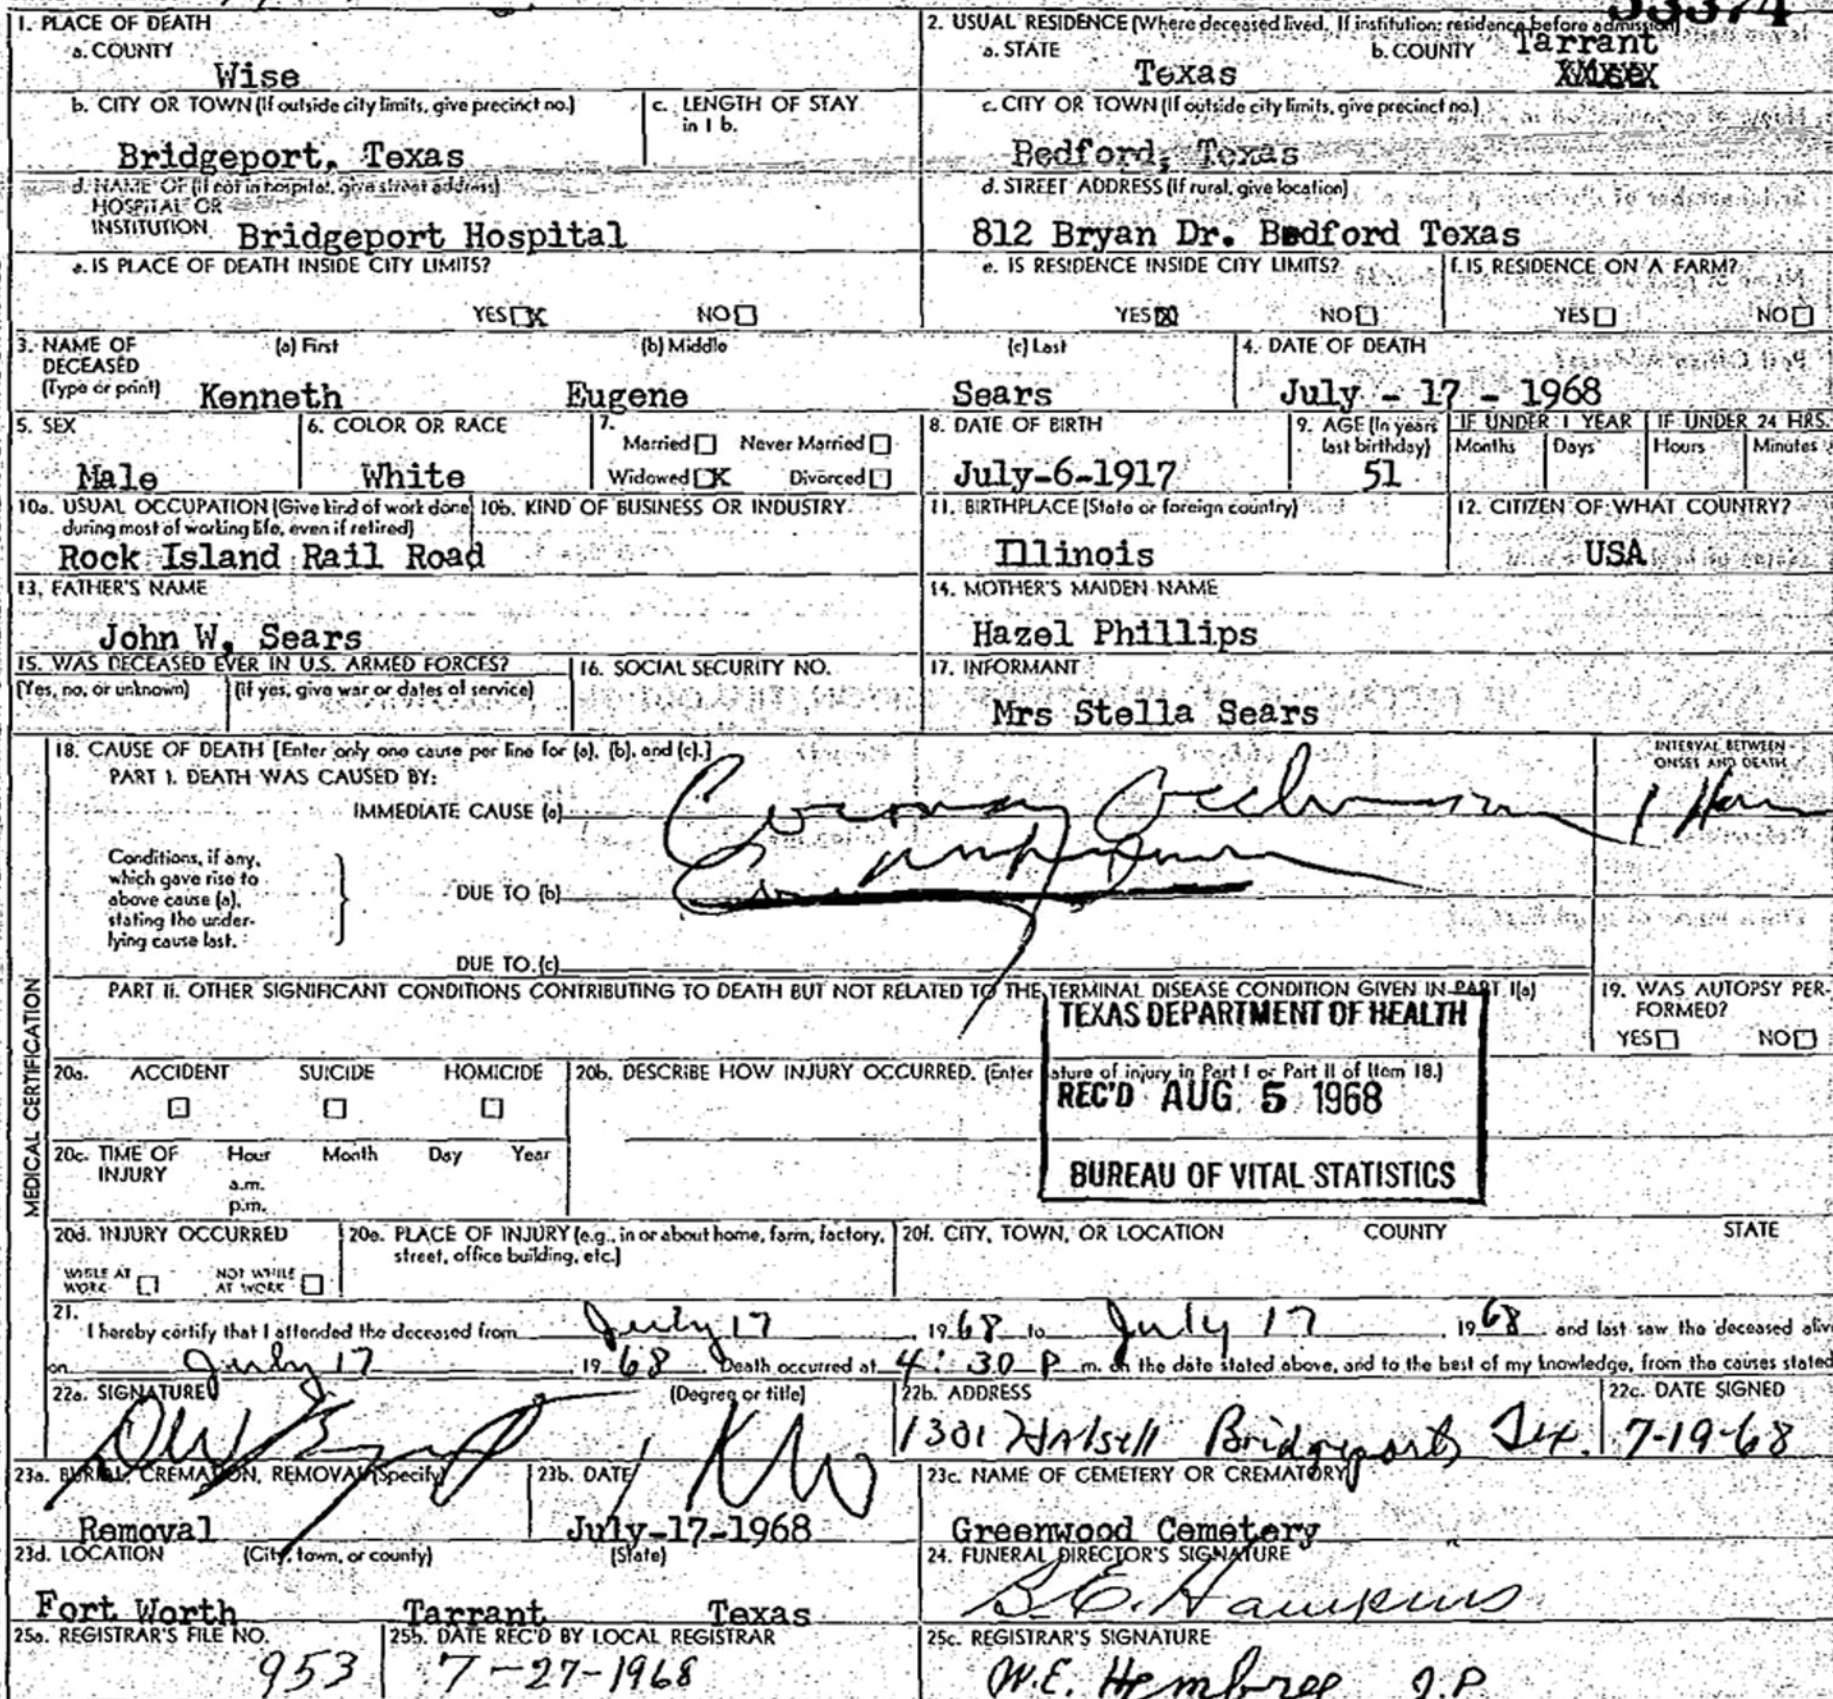 53374
1. PLACE OF DEATH
a. COUNTY
Wise
2. USUAL RESIDENCE (Where deceased lived. If institution: residence before admission)
a. STATE
Texas
b. COUNTY Tarrant
b. CITY OR TOWN (If outside city limits, give precinct no.)
Bridgeport, Texas
c. LENGTH OF STAY in 1 b.
c. CITY OR TOWN (If outside city limits, give precinct no.)
Bedford, Texas
d. NAME OF (If not in hospital, give street address)
HOSPITAL OR
INSTITUTION Bridgeport Hospital
d. STREET ADDRESS (If rural, give location)
812 Bryan Dr. Bedford Texas
e. IS PLACE OF DEATH INSIDE CITY LIMITS?
YES X NO
e. IS RESIDENCE INSIDE CITY LIMITS?
YES X NO
f. IS RESIDENCE ON A FARM?
YES NO
3. NAME OF DECEASED (Type or print)
(a) First (b) Middle (c) Last
Kenneth Eugene Sears
4. DATE OF DEATH
July - 17 - 1968
5. SEX
Male
6. COLOR OR RACE
White
7.
Married Never Married
Widowed X Divorced
8. DATE OF BIRTH
July-6-1917
9. AGE (In years last birthday)
51
IF UNDER 1 YEAR
Months Days
IF UNDER 24 HRS.
Hours Minutes
10a. USUAL OCCUPATION (Give kind of work done during most of working life, even if retired)
Rock Island Rail Road
10b. KIND OF BUSINESS OR INDUSTRY
11. BIRTHPLACE (State or foreign country)
Illinois
12. CITIZEN OF WHAT COUNTRY?
USA
13. FATHER'S NAME
John W. Sears
14. MOTHER'S MAIDEN NAME
Hazel Phillips
15. WAS DECEASED EVER IN U.S. ARMED FORCES?
(Yes, no, or unknown) (If yes, give war or dates of service)
16. SOCIAL SECURITY NO.
17. INFORMANT
Mrs Stella Sears
MEDICAL CERTIFICATION
18. CAUSE OF DEATH [Enter only one cause per line for (a), (b), and (c).]
PART I. DEATH WAS CAUSED BY:
IMMEDIATE CAUSE (a) Coronary Occlusion
INTERVAL BETWEEN ONSET AND DEATH
1 Hour
Conditions, if any, which gave rise to above cause (a), stating the underlying cause last.
DUE TO (b)
DUE TO (c)
PART II. OTHER SIGNIFICANT CONDITIONS CONTRIBUTING TO DEATH BUT NOT RELATED TO THE TERMINAL DISEASE CONDITION GIVEN IN PART I(a)
19. WAS AUTOPSY PERFORMED?
YES NO
TEXAS DEPARTMENT OF HEALTH
REC'D AUG 5 1968
BUREAU OF VITAL STATISTICS
20a. ACCIDENT SUICIDE HOMICIDE
20b. DESCRIBE HOW INJURY OCCURRED. (Enter nature of injury in Part I or Part II of Item 18.)
20c. TIME OF INJURY
Hour Month Day Year
a.m.
p.m.
20d. INJURY OCCURRED
WHILE AT WORK NOT WHILE AT WORK
20e. PLACE OF INJURY (e.g., in or about home, farm, factory, street, office building, etc.)
20f. CITY, TOWN, OR LOCATION COUNTY STATE
21.
I hereby certify that I attended the deceased from July 17, 1968 to July 17 1968 and last saw the deceased alive
on July 17, 1968. Death occurred at 4:30 P m. on the date stated above, and to the best of my knowledge, from the causes stated
22a. SIGNATURE (Degree or title)
22b. ADDRESS
1301 Halsell Bridgeport, Tex.
22c. DATE SIGNED
7-19-68
23a. BURIAL, CREMATION, REMOVAL (Specify)
Removal
23b. DATE
July-17-1968
23c. NAME OF CEMETERY OR CREMATORY
Greenwood Cemetery
23d. LOCATION (City, town, or county) (State)
Fort Worth Tarrant Texas
24. FUNERAL DIRECTOR'S SIGNATURE
B.E. Hawkins
25a. REGISTRAR'S FILE NO.
953
25b. DATE REC'D BY LOCAL REGISTRAR
7-27-1968
25c. REGISTRAR'S SIGNATURE
W.E. Hembree J.P